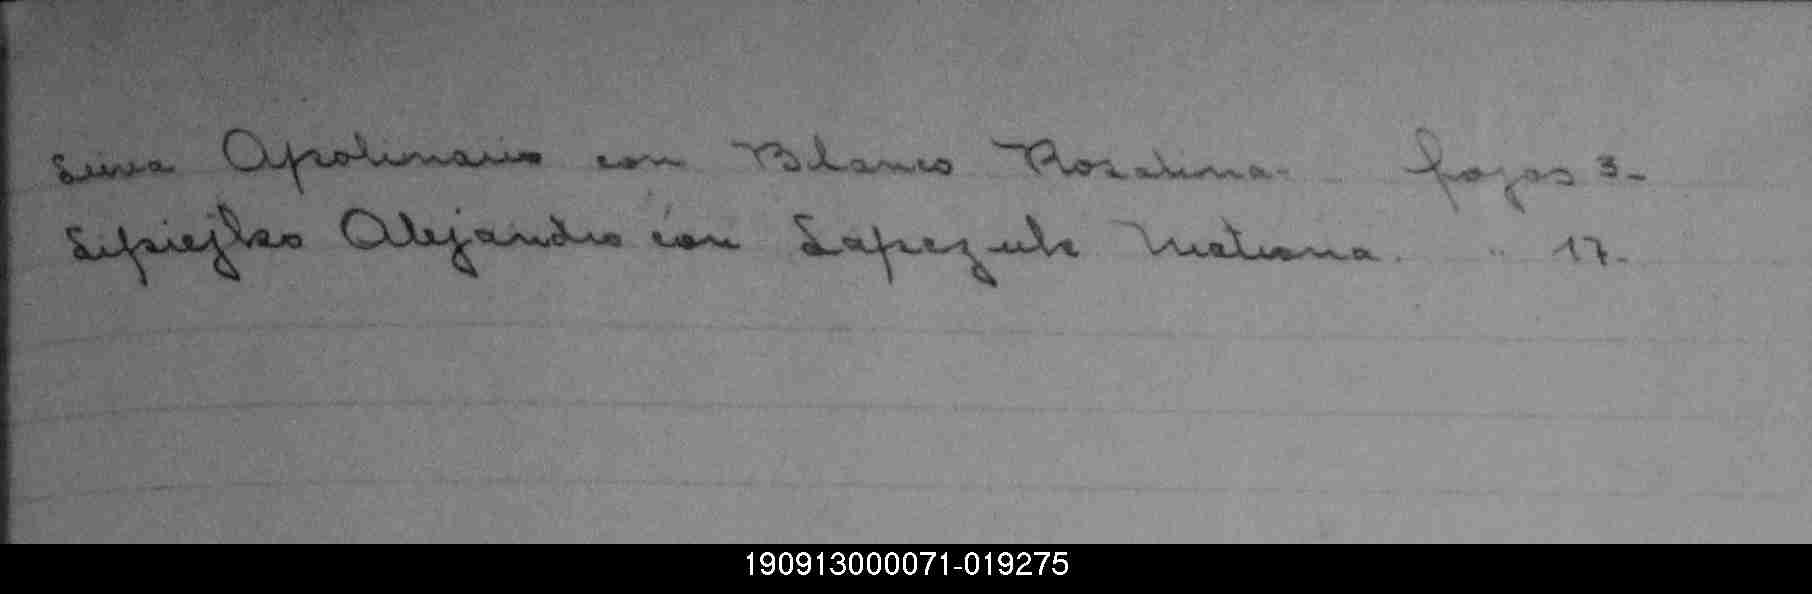 Leiva Apolinario con Blanco Rosalina. fojas 3-
Lipiejko Alejandro con Lapezuk Matrona. " 17.
190913000071-019275